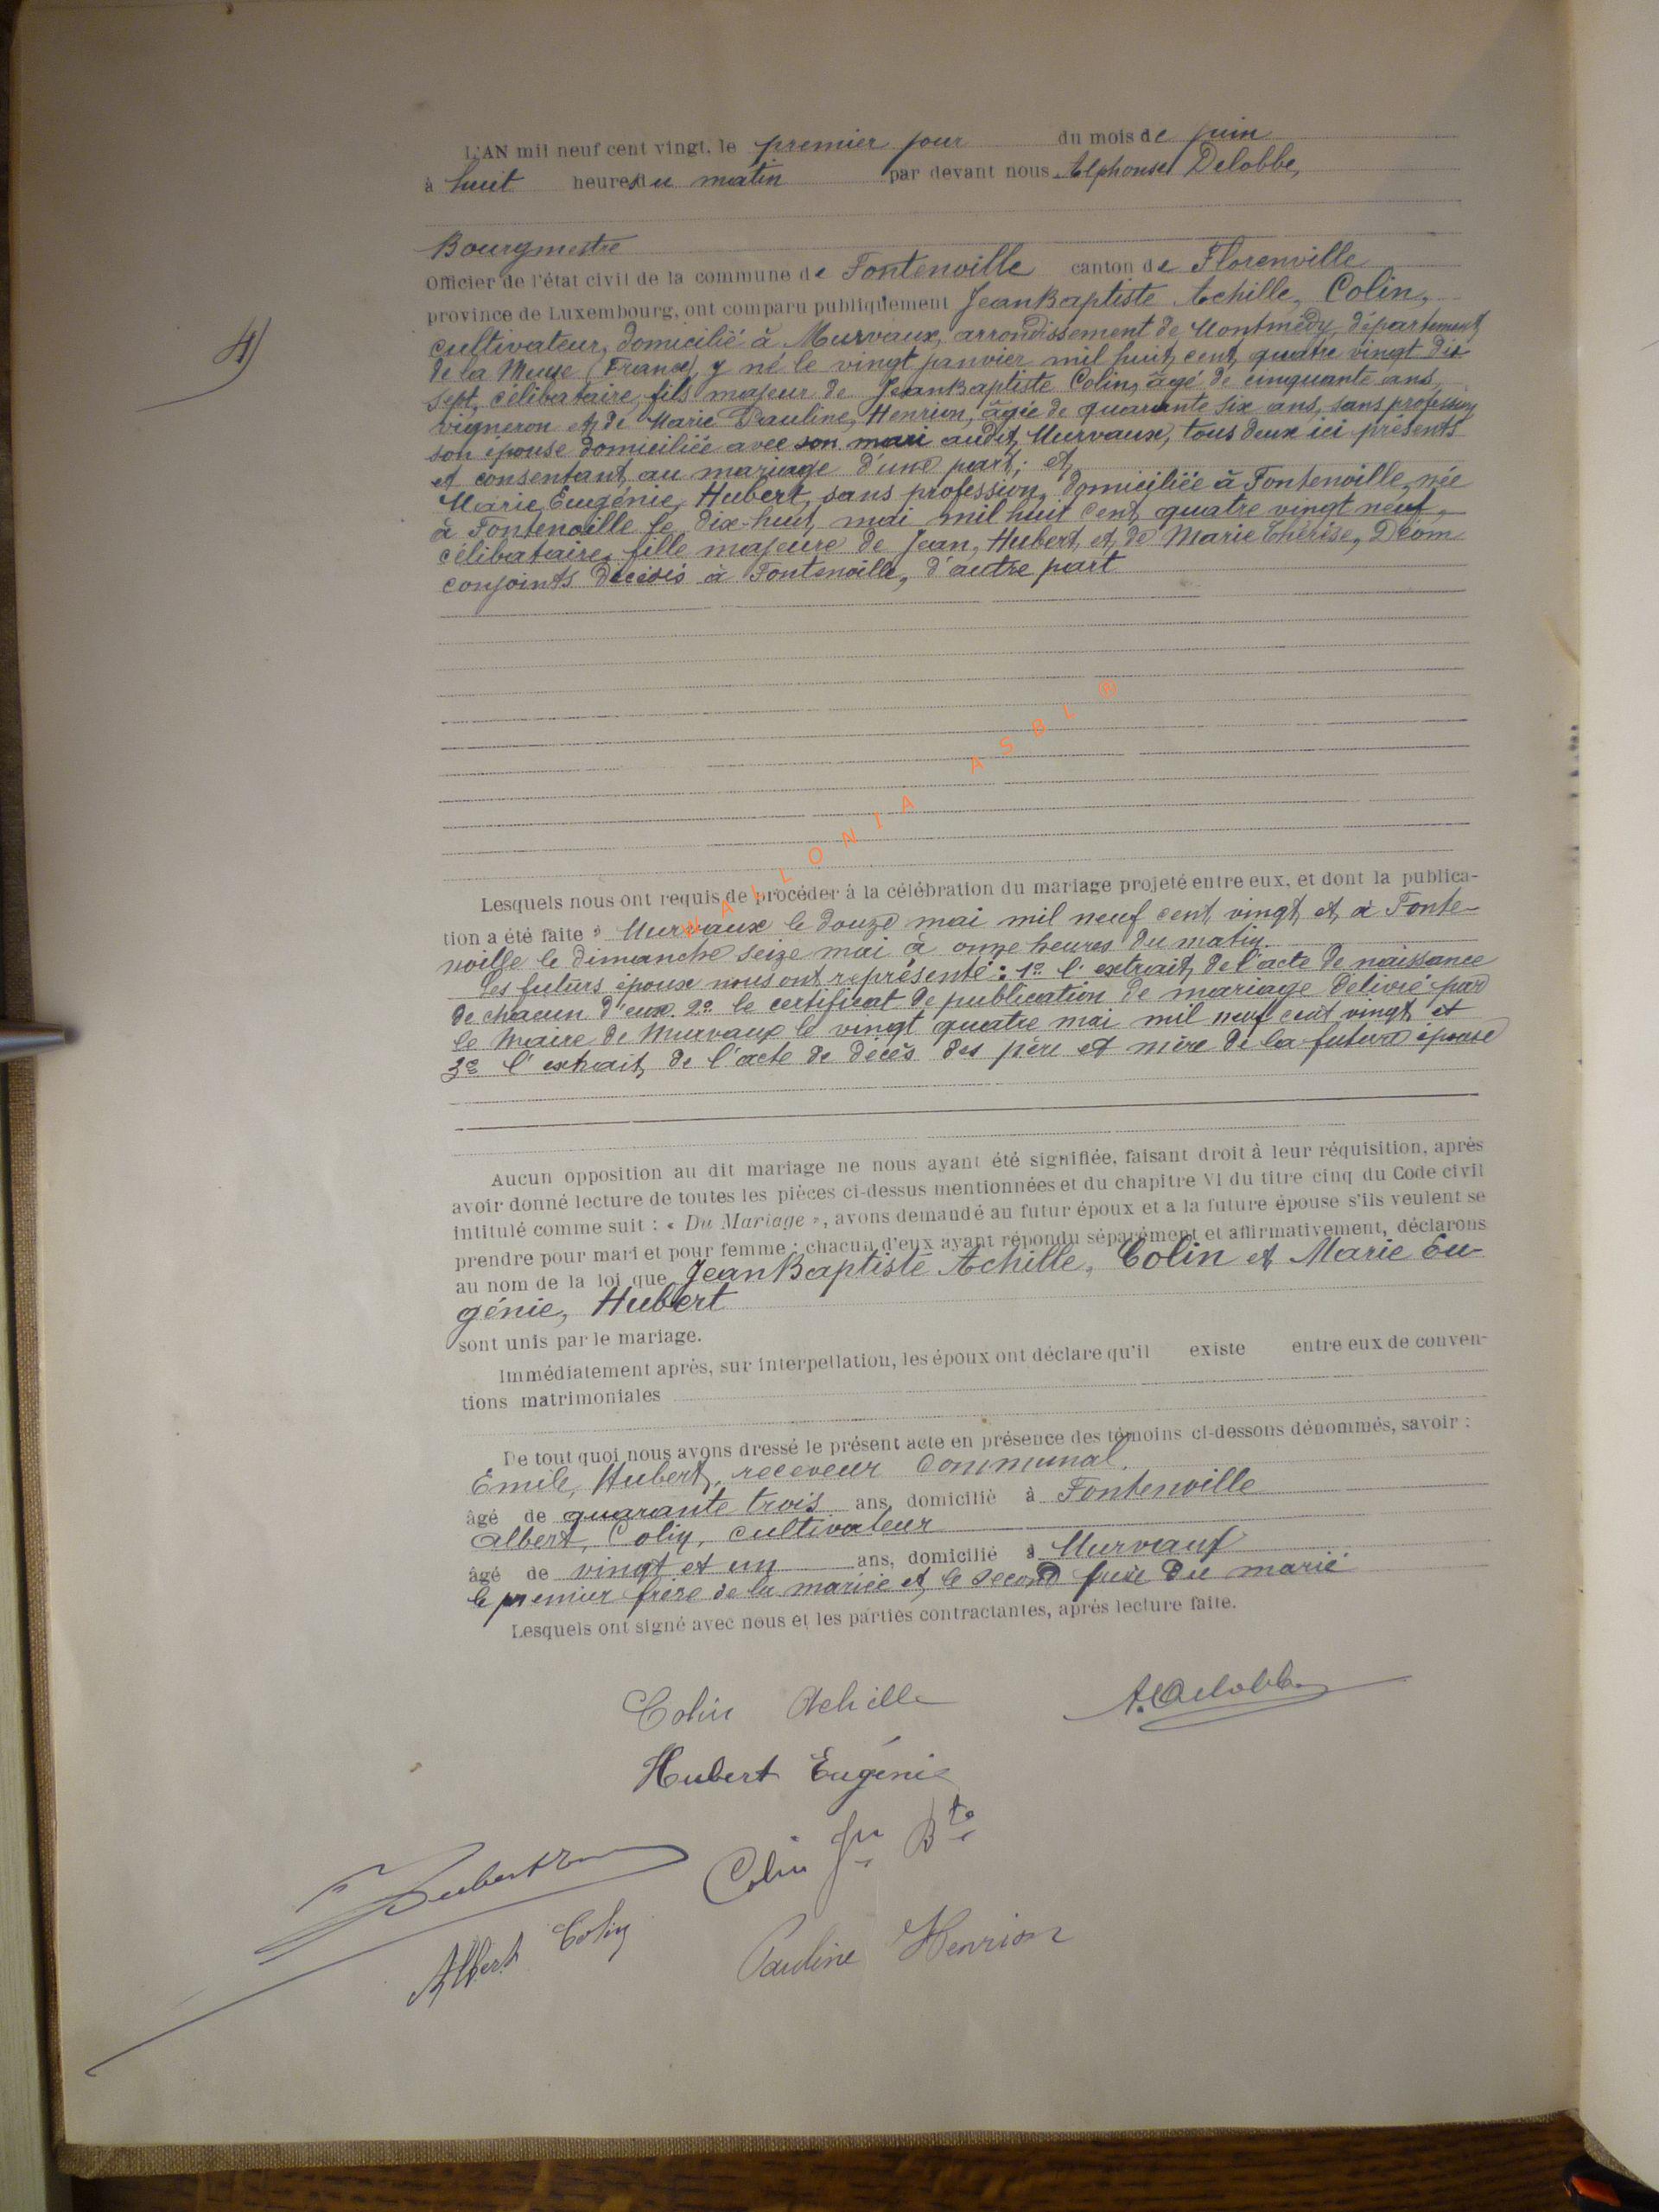 4)
L'AN mil neuf cent vingt, le premier jour du mois de juin
à huit heures du matin par devant nous Alphonse Delobbe,
Bourgmestre
Officier de l'état civil de la commune de Fontenoille canton de Florenville
province de Luxembourg, ont comparu publiquement Jean Baptiste Achille, Colin,
cultivateur, domicilié à Murvaux, arrondissement de Montmédy, département
de la Meuse (France), y né le vingt janvier mil huit cent quatre vingt dix
sept, célibataire, fils majeur de Jean Baptiste Colin, âgé de cinquante ans,
vigneron et de Marie Pauline, Henrion, âgée de quarante six ans, sans profession,
son épouse domiciliée avec son mari audit Murvaux, tous deux ici présents
et consentant au mariage d'une part; et
Marie, Eugénie, Hubert, sans profession, domiciliée à Fontenoille, née
à Fontenoille le dix-huit mai mil huit cent quatre vingt neuf,
célibataire, fille majeure de Jean, Hubert, et de Marie Thérèse, Déom
conjoints décédés à Fontenoille, d'autre part
WALLONIA ASBL ®
Lesquels nous ont requis de procéder à la célébration du mariage projeté entre eux, et dont la publica-
tion a été faite à Murvaux le douze mai mil neuf cent vingt et à Fonte-
noille le dimanche seize mai à onze heures du matin.
Les futurs époux nous ont représenté : 1º l'extrait de l'acte de naissance
de chacun d'eux. 2º le certificat de publication de mariage délivré par
le Maire de Murvaux le vingt quatre mai mil neuf cent vingt et
3º l'extrait de l'acte de décès des père et mère de la future épouse
Aucun opposition au dit mariage ne nous ayant été signifiée, faisant droit à leur réquisition, après
avoir donné lecture de toutes les pièces ci-dessus mentionnées et du chapitre VI du titre cinq du Code civil
intitulé comme suit : « Du Mariage », avons demandé au futur époux et à la future épouse s'ils veulent se
prendre pour mari et pour femme : chacun d'eux ayant répondu séparément et affirmativement, déclarons
au nom de la loi que Jean Baptiste Achille, Colin et Marie Eu-
génie, Hubert
sont unis par le mariage.
Immédiatement après, sur interpellation, les époux ont déclare qu'il existe entre eux de conven-
tions matrimoniales
De tout quoi nous avons dressé le présent acte en présence des témoins ci-dessons dénommés, savoir :
Emile, Hubert, receveur communal.
âgé de quarante trois ans, domicilié à Fontenoille
Albert, Colin, cultivateur
âgé de vingt et un ans, domicilié à Murvaux
le premier frère de la mariée et le second frère du marié
Lesquels ont signé avec nous et les parties contractantes, après lecture faite.
Colin Achille A. Delobbe
Hubert Eugénie
Hubert Colin Jn Bte
Albert Colin Pauline Henrion